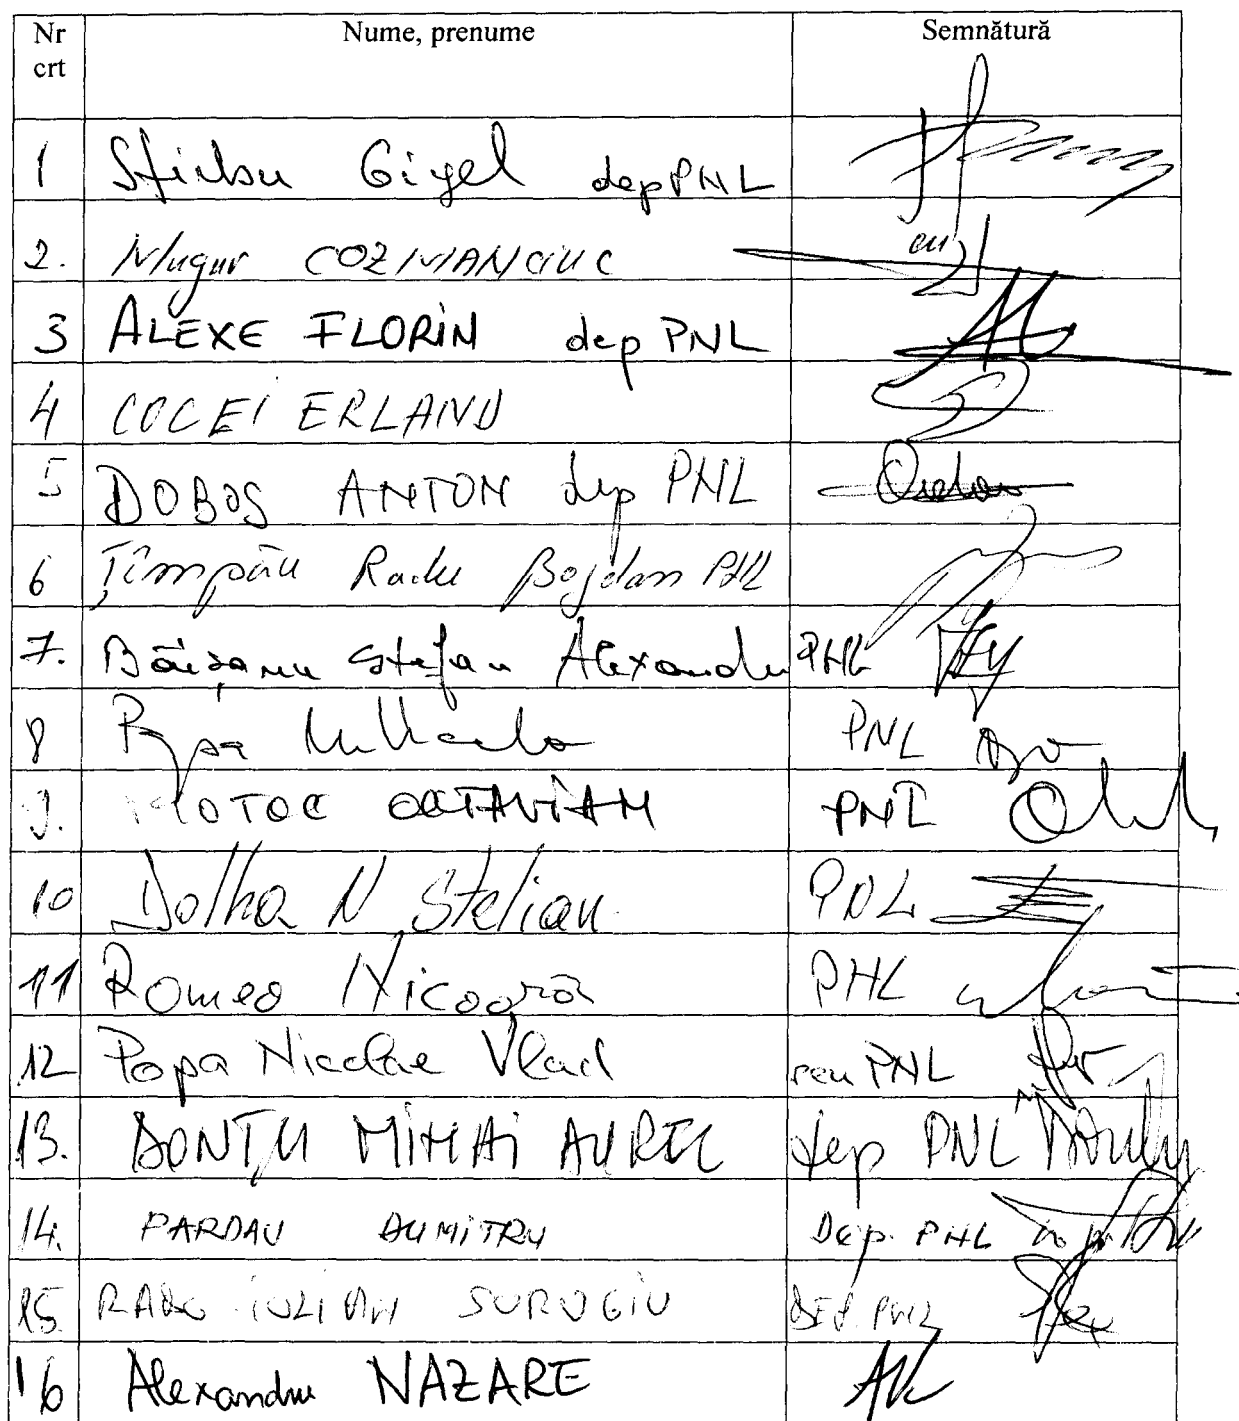 Nr crt Nume, prenume Semnătură
1 Știrbu Gigel dep PNL
2. Mugur COZMANCIUC
3 ALEXE FLORIN dep PNL
4 COCEI ERLAND
5 DOBOȘ ANTON dep PNL
6 Țîmpău Radu Bogdan PNL
7. Băișanu Ștefan Alexandru PNL
8 PNL
9. MOTOC OCTAVIAN PNL
10 Dolha N Stelian PNL
11 Romeo Nicoară PNL
12 Popa Nicolae Vlad sen PNL
13. DONȚU MIHAI AUREL dep PNL
14. PARDĂU DUMITRU Dep. PNL
15. RADU IULIAN SURUGIU DEP. PNL
16 Alexandru NAZARE